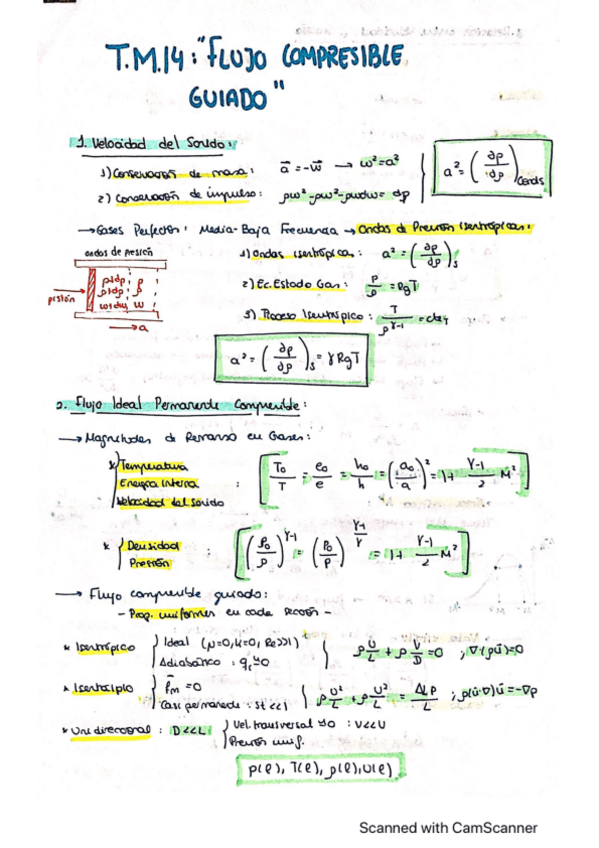 T.M.14: "FLUJO COMPRESIBLE
GUIADO"
1. Velocidad del Sonido:
1) Conservación de masa: a⃗ = -w⃗ → w²=a²
2) Conservación de impulso: ρw²-ρw²-ρwdw = dp
a² = (∂p/∂ρ)
→ Gases Perfectos: Media-Baja Frecuencia → Ondas de Presión Isentrópicas:
ondas de presión
pistón
p+dp
ρ+dρ
w+dw
p
ρ
w
→a
1) Ondas isentrópicas: a² = (∂p/∂ρ)s
2) Ec. Estado Gas: p/ρ = RgT
3) Proceso Isentrópico: T/ρ^γ-1 =
a² = (∂p/∂ρ)s = γRgT
2. Flujo Ideal Permanente Compresible:
→ Magnitudes de Remanso en Gases:
* Temperatura
Energía Interna
Velocidad del sonido
:
[T₀/T = e₀/e = h₀/h = (a₀/a)² = 1+ γ-1/2 M²]
* Densidad
Presión
:
[(ρ₀/ρ)^γ-1 = (p₀/p)^γ-1/γ = 1+ γ-1/2 M²]
→ Flujo compresible guiado:
- Prop. uniformes en cada sección -
* Isentrópico { Ideal (μ=0, K=0, Re>>1)
Adiabático: q̇
{ ρ U/L + ρ V/D = 0 ; ∇·(ρu⃗)=0
* f⃗m = 0
Casi permanente: St<<1
{ ρ U²/L + ρ U²/L = ΔLp/L ; ρ(u⃗·∇)u⃗ = -∇p
* Unidireccional: D<<L { Vel. transversal : V<<U
Presión unif.
p(l), T(l), ρ(l), U(l)
Scanned with CamScanner